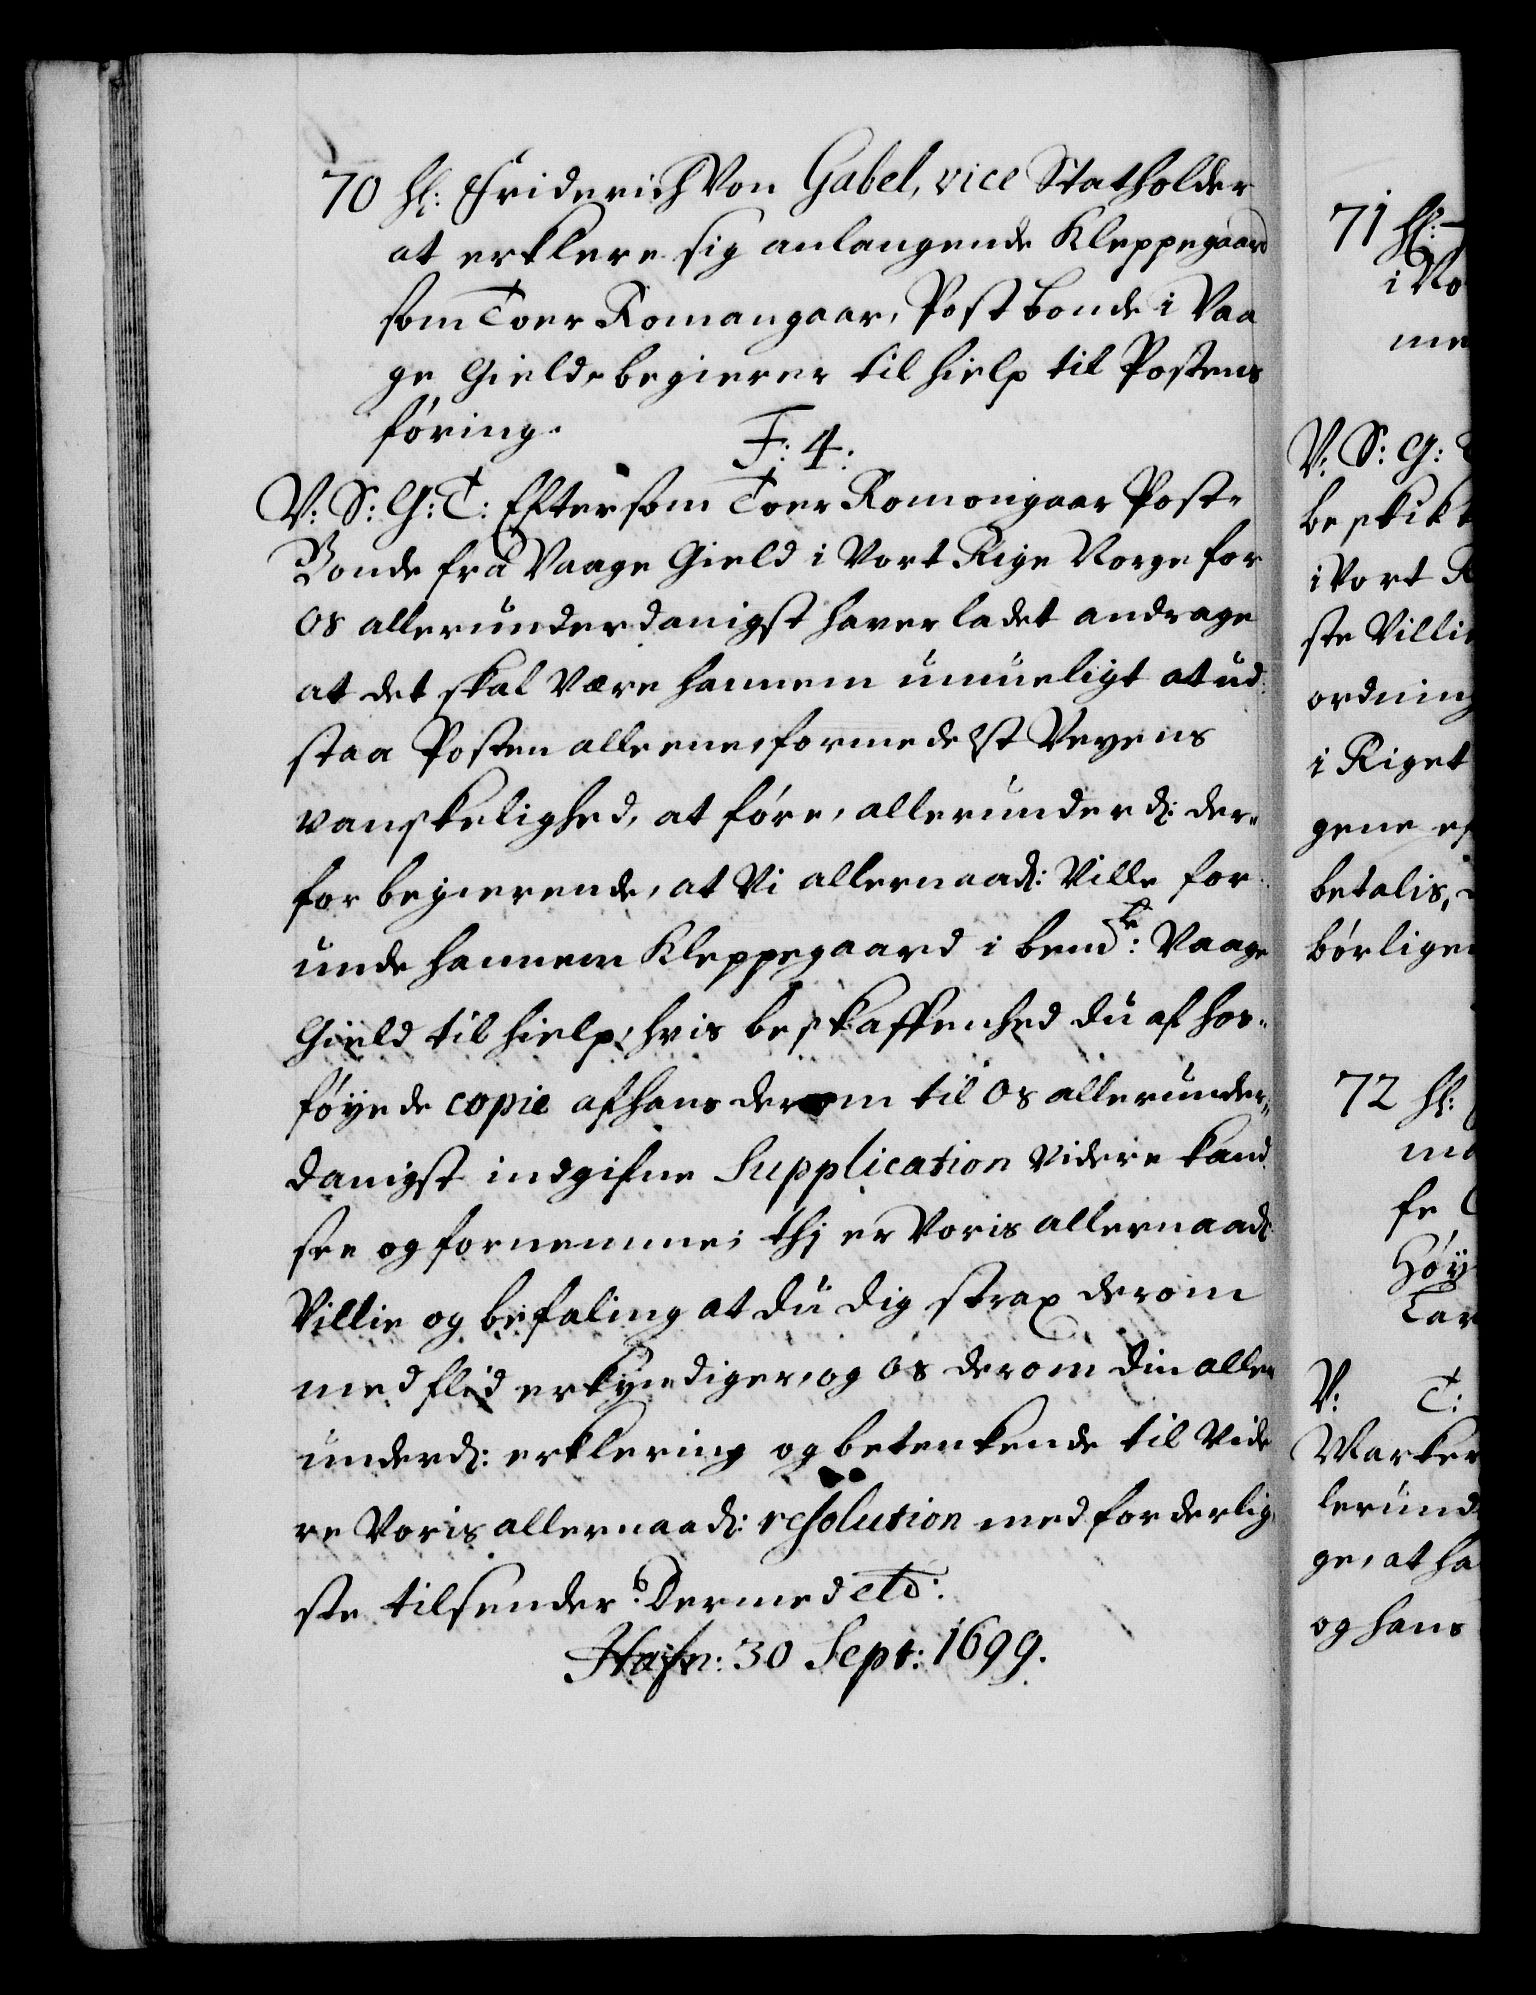 70 Hl: Friderich Von Gabel, vice Statholder
at erklere sig anlangende Kleppegaard
som Toer Romangaar, Post bonde i Vaa
ge Gield, begierer til hielp til Postens
föring.
F: 4:
V: S: G: T: Eftersom Toer Romongaar Post-
Bonde fra Vaage Gield i Vort Rige Norge for
os allerunderdanigst haver ladet andrage
at det skal være hannem umueligt at ud-
staa Posten alleene, formedelst Veyens
vanskelighed, at före, allerunderd: der-
for begierende, at Vi allernaad: Ville for-
unde hannem Kleppegaard i bemte: Vaage
Gield til hielp, hvis beskaffenhed du af hos-
föyede copie af hans derom til os allerunder-
danigst indgifne Supplication videre kand
see og fornemme; thj er Voris allernaad:
Villie og befaling at du dig strax derom
med flid erkyndiger, og os derom din aller
underd: erklering og betenkende til Vide
re Voris allernaad: resolution med forderlig-
ste tilsender. Dermed etc:
Hafn: 30 Sept: 1699.
71 Hl:
i No
me
V: S: G:
beskikt
i Vort R
ste Villi
ordning
i Riget
gene ef
betalis,
börlige
72 Hl:
ma
fe
Höy
Lar
V: T:
Marker
lerund
ge, at ha
og hans